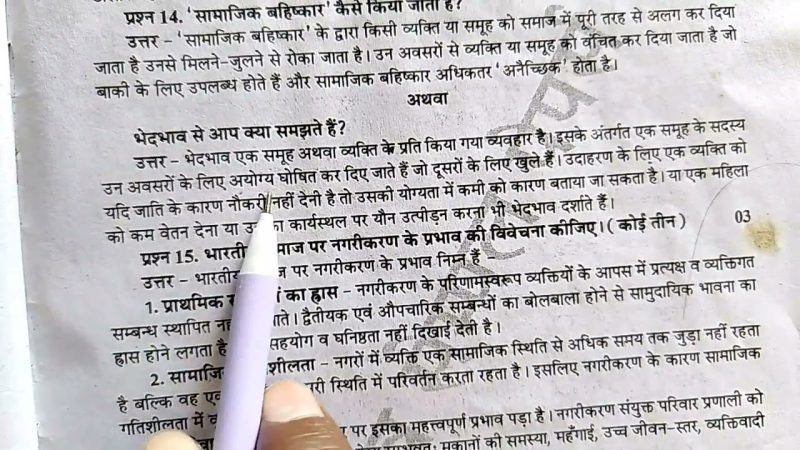 प्रश्न 14. 'सामाजिक बहिष्कार' कैसे किया जाता है?
उत्तर – 'सामाजिक बहिष्कार' के द्वारा किसी व्यक्ति या समूह को समाज में पूरी तरह से अलग कर दिया
जाता है उनसे मिलने-जुलने से रोका जाता है। उन अवसरों से व्यक्ति या समूह को वंचित कर दिया जाता है जो
बाकी के लिए उपलब्ध होते हैं और सामाजिक बहिष्कार अधिकतर 'अनैच्छिक' होता है।
अथवा
भेदभाव से आप क्या समझते हैं?
उत्तर – भेदभाव एक समूह अथवा व्यक्ति के प्रति किया गया व्यवहार है। इसके अंतर्गत एक समूह के सदस्य
उन अवसरों के लिए अयोग्य घोषित कर दिए जाते हैं जो दूसरों के लिए खुले हैं। उदाहरण के लिए एक व्यक्ति को
यदि जाति के कारण नौकरी नहीं देनी है तो उसकी योग्यता में कमी को कारण बताया जा सकता है। या एक महिला
को कम वेतन देना या कार्यस्थल पर यौन उत्पीड़न करना भी भेदभाव दर्शाते हैं।
प्रश्न 15. भारतीय समाज पर नगरीकरण के प्रभाव की विवेचना कीजिए। (कोई तीन) 03
उत्तर – भारतीय पर नगरीकरण के प्रभाव निम्न हैं
1. प्राथमिक का ह्रास – नगरीकरण के परिणामस्वरूप व्यक्तियों के आपस में प्रत्यक्ष व व्यक्तिगत
सम्बन्ध स्थापित । द्वितीयक एवं औपचारिक सम्बन्धों का बोलबाला होने से सामुदायिक भावना का
ह्रास होने लगता है सहयोग व घनिष्ठता नहीं दिखाई देती है।
2. सामाजिक – नगरों में व्यक्ति एक सामाजिक स्थिति से अधिक समय तक जुड़ा नहीं रहता
है बल्कि वह स्थिति में परिवर्तन करता रहता है। इसलिए नगरीकरण के कारण सामाजिक
गतिशीलता में
पर इसका महत्वपूर्ण प्रभाव पड़ा है। नगरीकरण संयुक्त परिवार प्रणाली को
मकानों की समस्या, महँगाई, उच्च जीवन-स्तर, व्यक्तिवादी